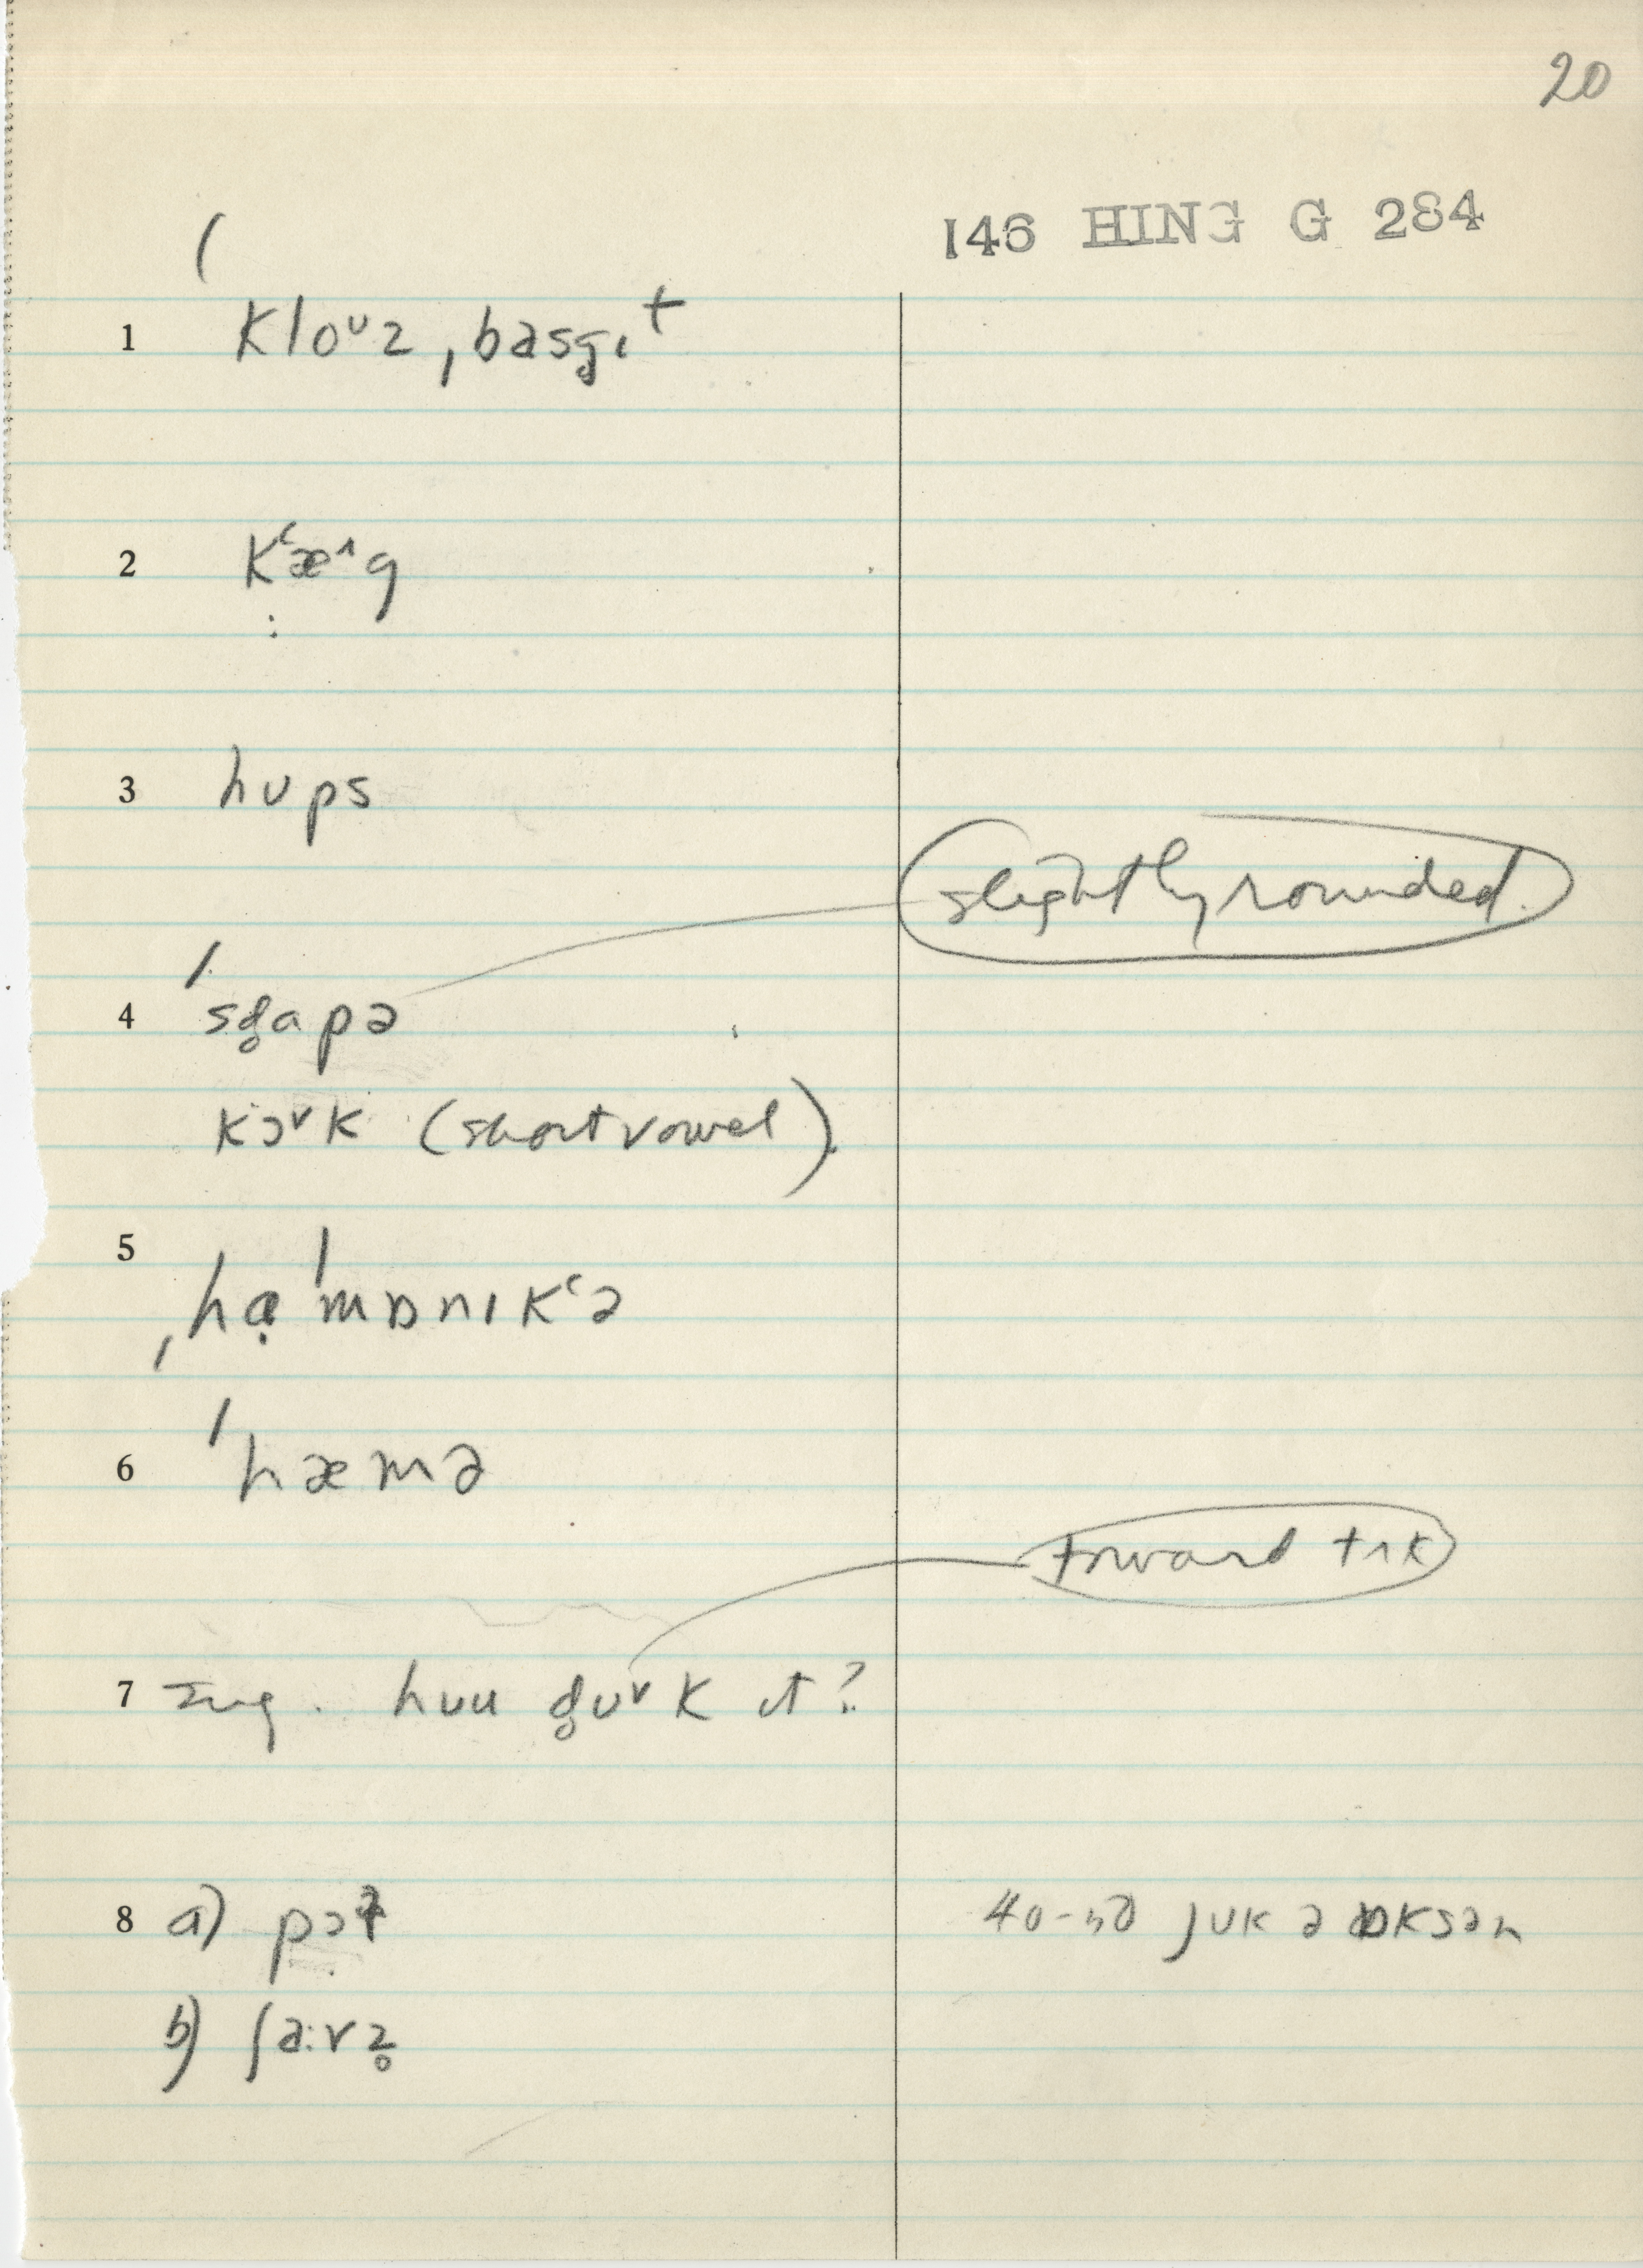 20
146 HING G 284
1 kloᶷz ˌbasg̥ɪt
2 kʻæ^g
3 hups
slightly rounded
4 ˈsg̥apə
kɔᵛk (short vowel)
5 ˌhɑ̣ˈmɒnɪkʻə
6 ˈhæmə
toward tʌk
7 huu g̥uᵛk ɪt?
8 a) pɔt 40-50 juk ə ɒksən
b) ʃa:vz̥